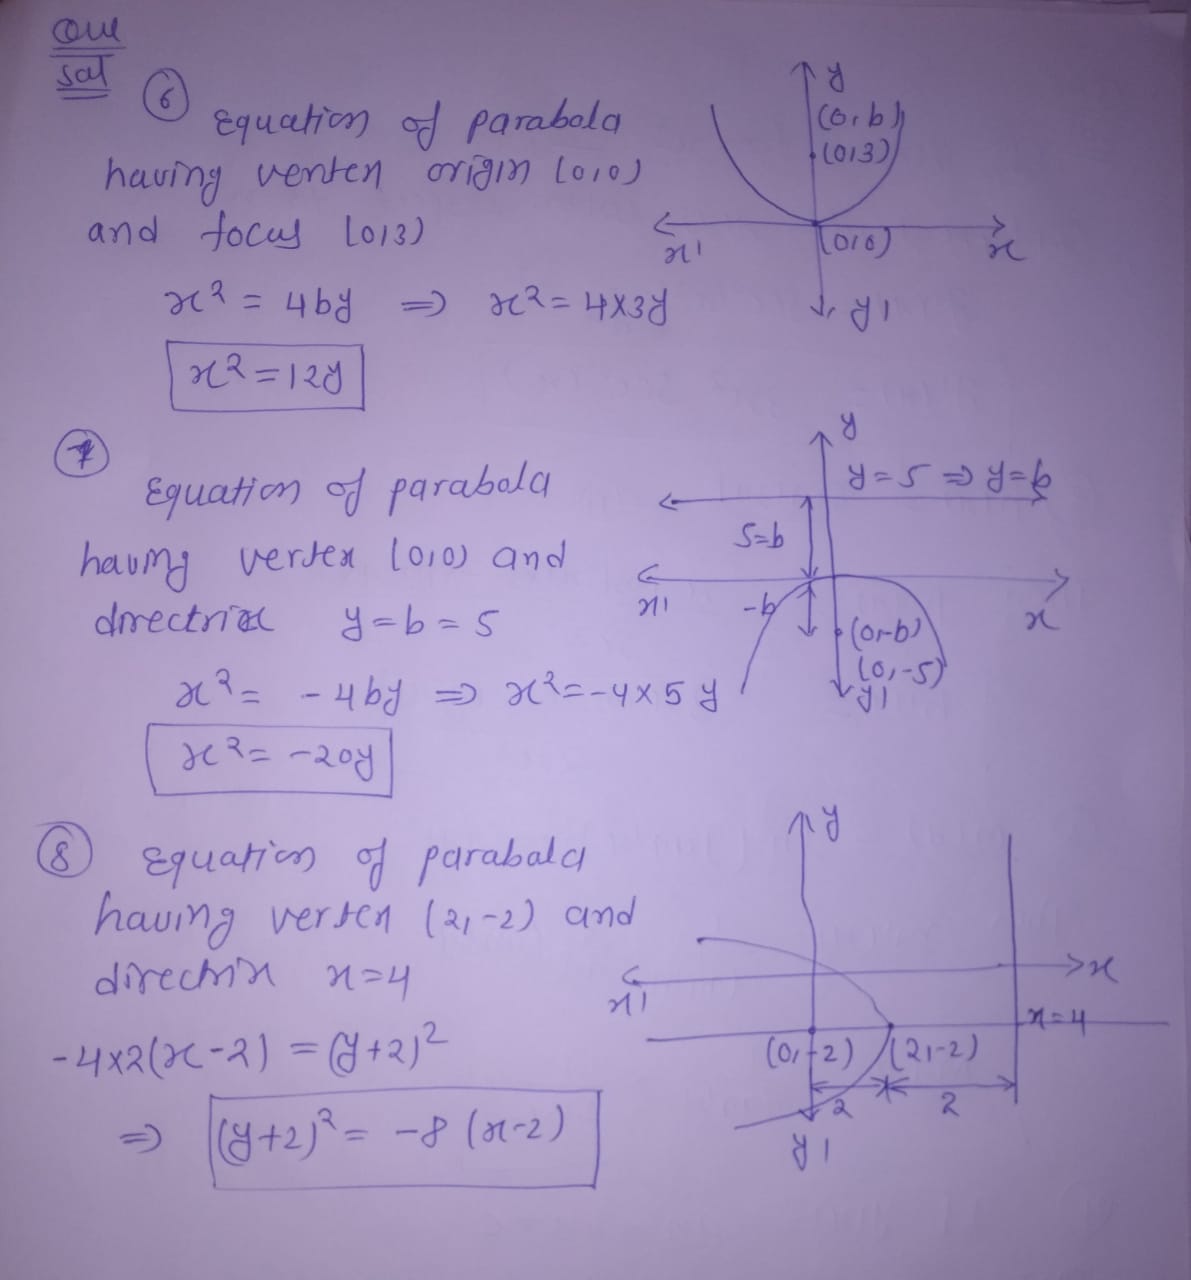 Que
sol
6 Equation of parabola
having verten origin (0,0)
and focus (0,3)
x² = 4by ⇒ x² = 4×3y
x² = 12y
y
(0,b)
(0,3)
x'
(0,0)
x
y'
7
Equation of parabola
having vertex (0,0) and
directrix y=b=5
x² = -4by ⇒ x² = -4×5y
x² = -20y
y
y=5 ⇒ y=b
5=b
x'
-b
x
(0,-b)
(0,-5)
y'
8 Equation of parabola
having verten (2,-2) and
directrix x=4
-4×2(x-2) = (y+2)²
⇒ (y+2)² = -8(x-2)
y
x
x'
x=4
(0,-2) (2,-2)
2 2
y'